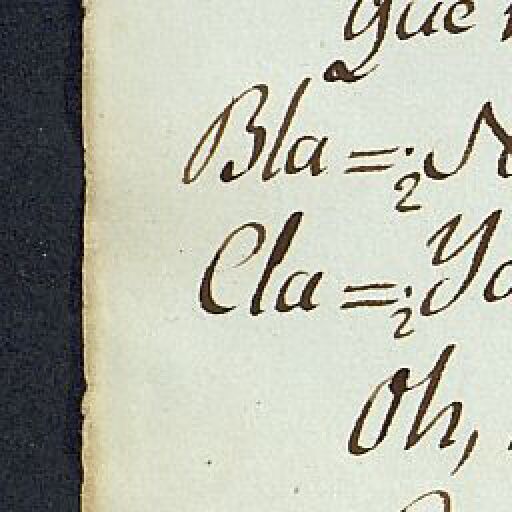 Que
Bla=¿
Cla=¿Yo
Oh,